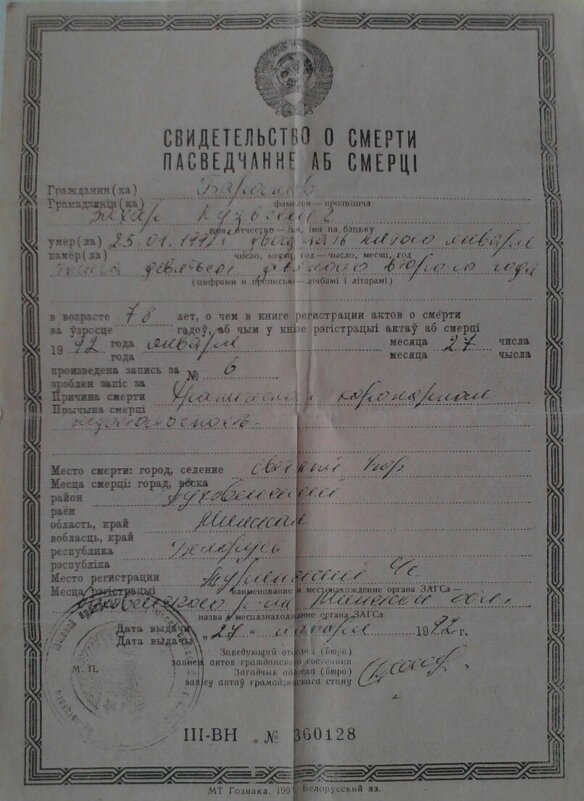 СВИДЕТЕЛЬСТВО О СМЕРТИ
ПАСВЕДЧАННЕ АБ СМЕРЦІ
Гражданин(ка)
Грамадзянін(ка) фамилия — прозвішча
Кузьмич
имя, отчество — імя, імя па бацьку
умер(ла) 25.01.1992 г двадцать пятого января
памёр(ла) число, месяц, год — чысло, месяц, год
тысяча девятьсот девяносто второго года
(цифрами и прописью — лічбамі і літарамі)
в возрасте 78 лет, о чем в книге регистрации актов о смерти
ва ўзросце гадоў, аб чым у кнізе рэгістрацыі актаў аб смерці
1992 года января месяца 27 числа
года месяца чысла
произведена запись за № 6
зроблен запіс за
Причина смерти коронарная
Прычына смерці
недостаточность
Место смерти: город, селение Светлый Бор
Месца смерці: горад, вёска
район Пуховичский
раён
область, край Минская
вобласць, край
республика Беларусь
рэспубліка
Место регистрации
Месца рэгістрацыі наименование и местонахождение органа ЗАГСа —
Пуховичского р-на Минской обл.
назва і месцазнаходжанне органа ЗАГСа
Дата выдачи „27" января 1992 г.
Дата выдачы
Заведующий отдела (бюро)
записи актов гражданского состояния
М. П. Загадчык аддзела (бюро)
запісу актаў грамадзянскага стану
III-ВН № 360128
МТ Гознака, 1991. Белорусский яз.